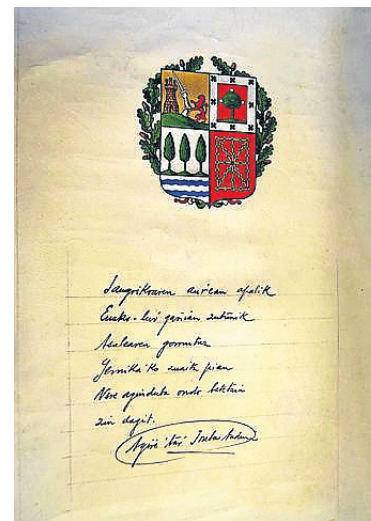 Jaungoikoaren aurrean apalik
Eusko-lur gañian zutunik
Asabearen gomutaz
Gernika'ko zuaitz pian
Nere aginduba ondo betetzia
zin dagit.
Agirre'tar Joseba Andoni